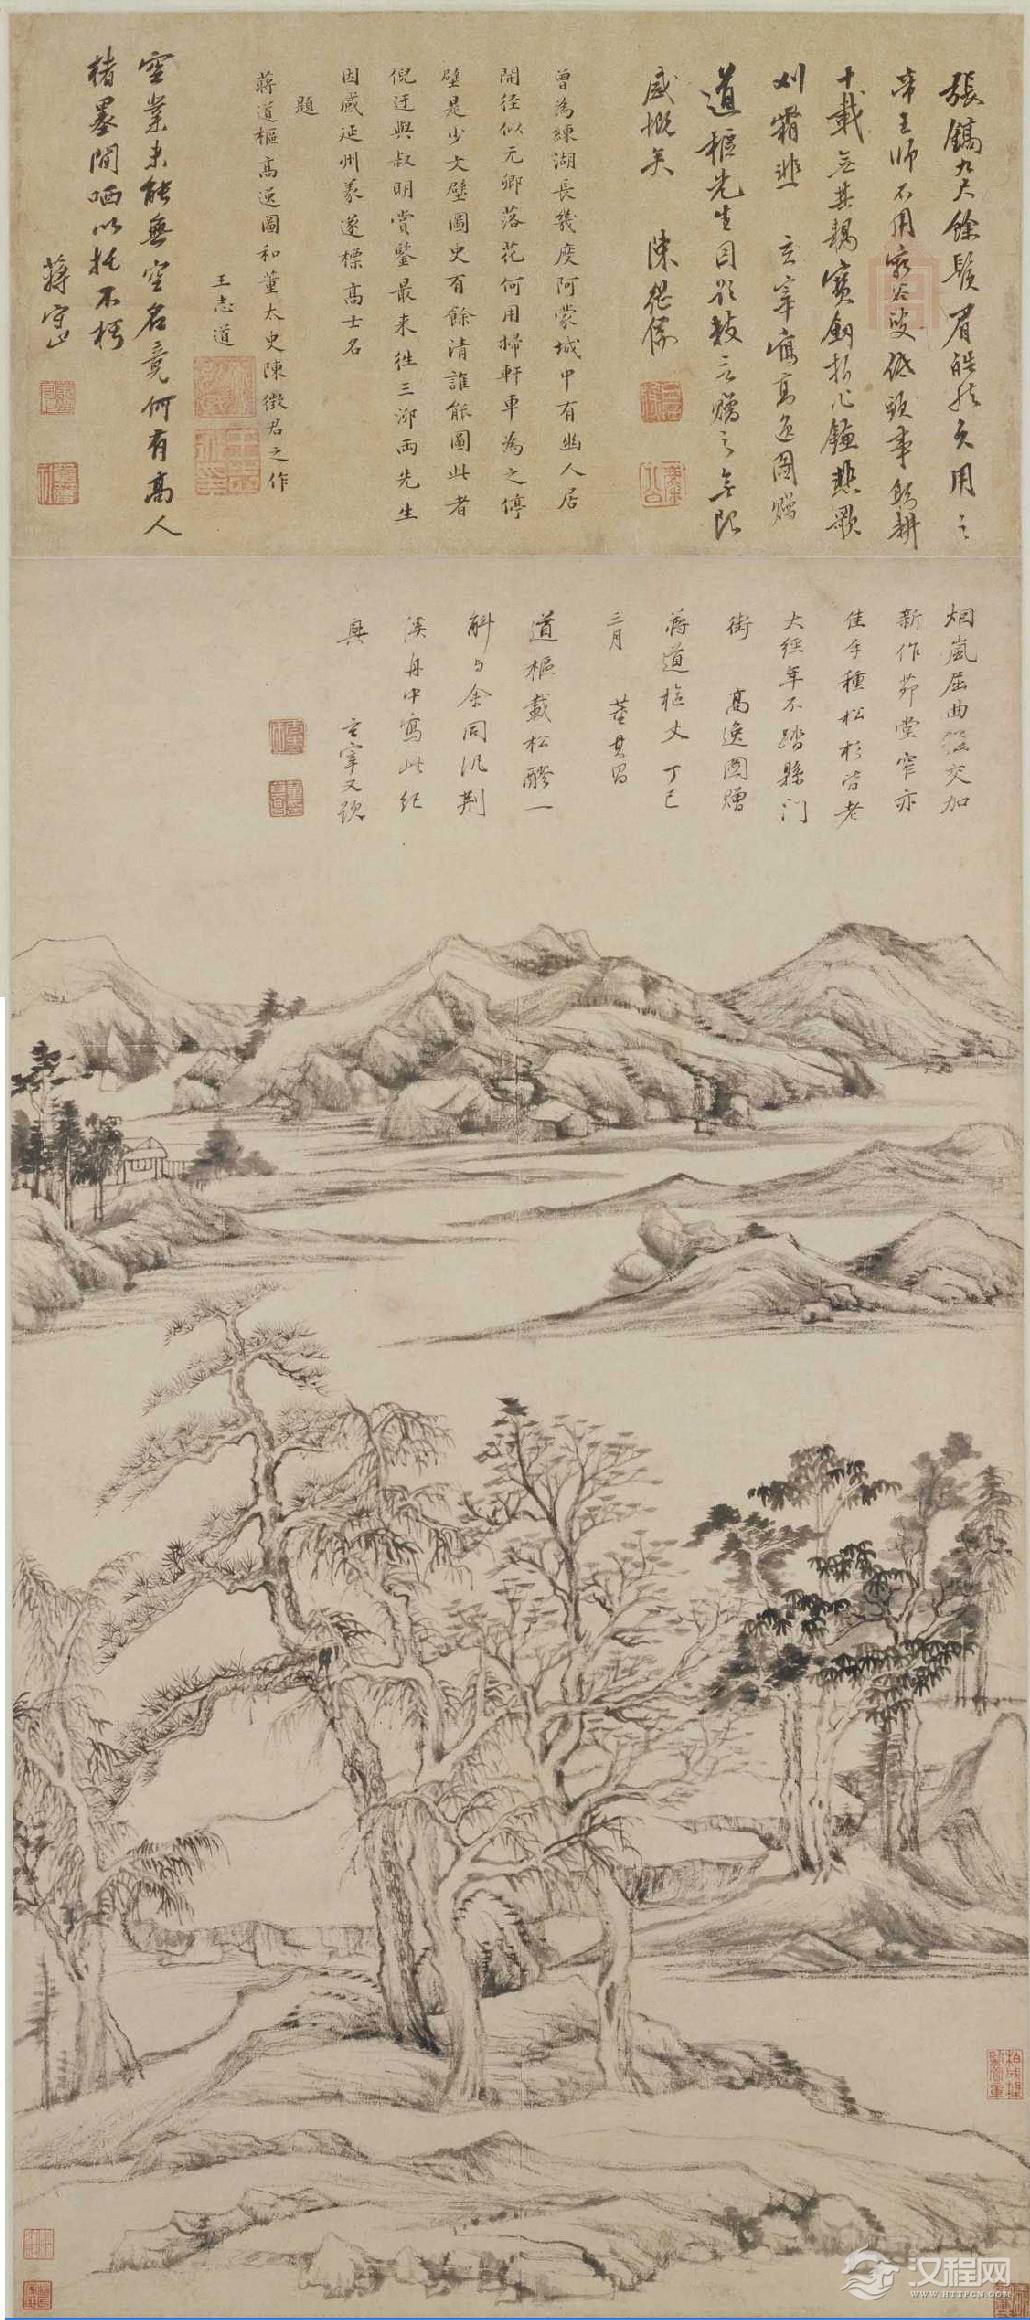 張鎬九尺餘鬚眉皓然矣用之
帝王師不用窮谷叟低頭事耦耕
十載無其耦寶劍折心鎌悲歌
刈霜韭 玄宰寫高逸圖贈
道樞先生因題數言贈之無限
感慨矣 陳繼儒
曾為練湖長幾度阿蒙城中有幽人居
開徑似元卿落花何用掃軒車為之停
壁是少文壁圖史有餘清誰能圖此者
倪迂與叔明賞鑒最來往三泖兩先生
因感延州義遂標高士名
題
蔣道樞高逸圖和董太史陳徵君之作
王志道
空業未能無空名竟何有高人
楮墨間哂以托不朽
蔣守止
烟嵐屈曲徑交加
新作茆堂窄亦
佳手種松杉皆老
大經年不踏縣門
街 高逸圖贈
蔣道樞丈 丁巳
三月 董其昌
道樞載松醪一
斛與余同汎荆
溪舟中寫此紀
興 玄宰又題
汉程网
WWW.HTTPCN.COM